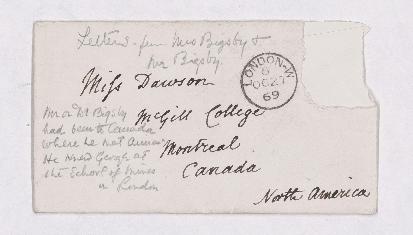 Letters from Mrs Bigsby &
Mr Bigsby
Miss Dawson
LONDON·W
6
OC 27
69
McGill College
Montreal
Canada
North America
Mr or Dr Bigsby
had been to Canada
where he met Anna
He knew George at
the School of Mines
in London